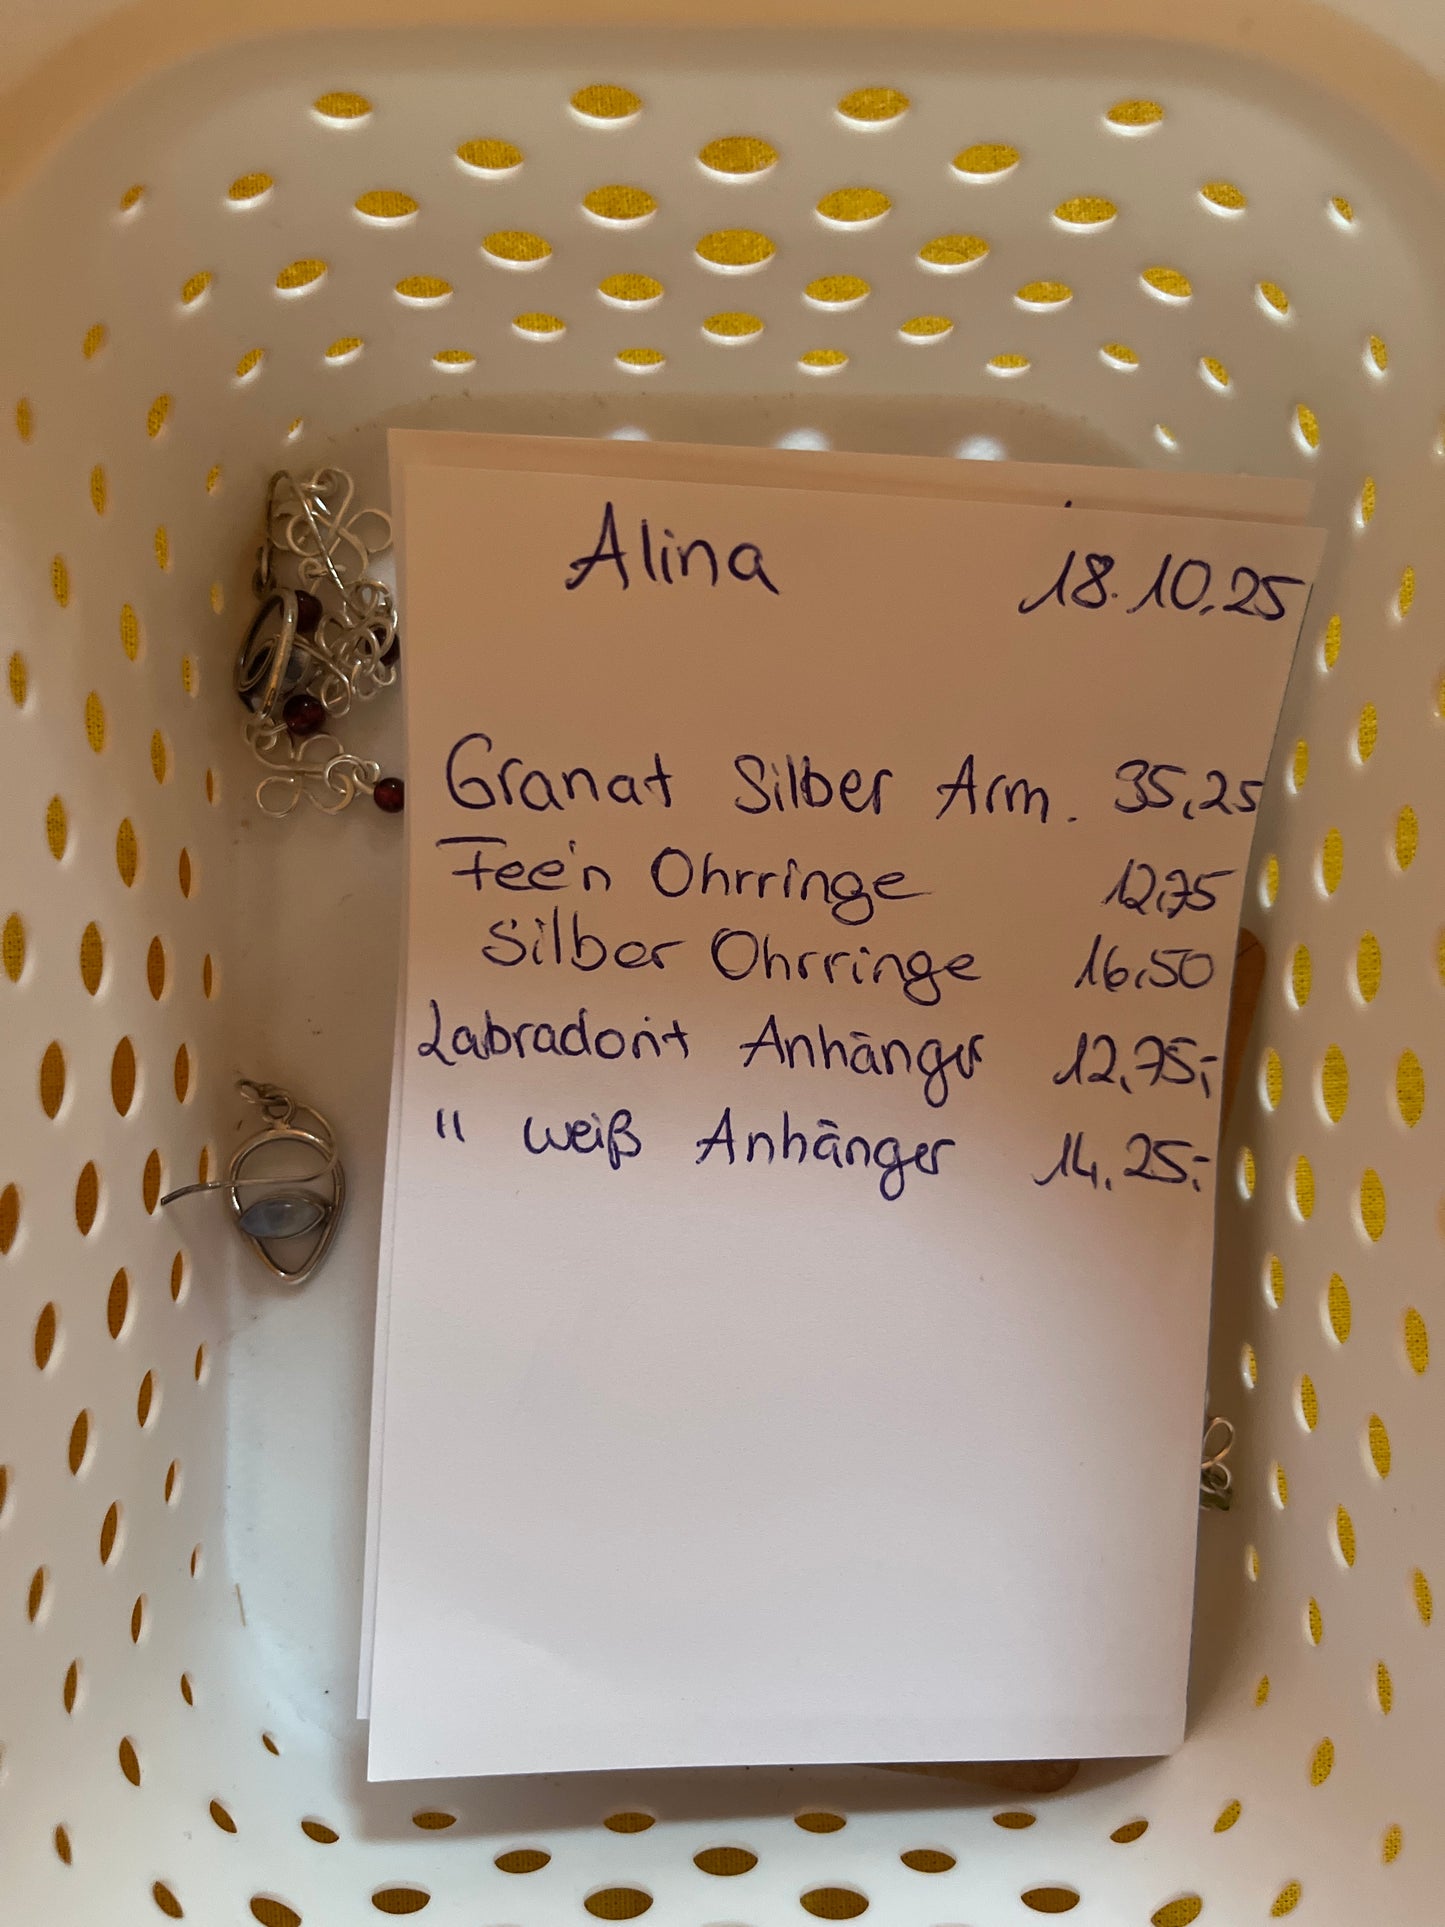 Alina 18.10.25
Granat Silber Arm. 35,25
Fee'n Ohrringe 12,75
Silber Ohrringe 16,50
Labradorit Anhänger 12,75,-
" weiß Anhänger 14,25,-